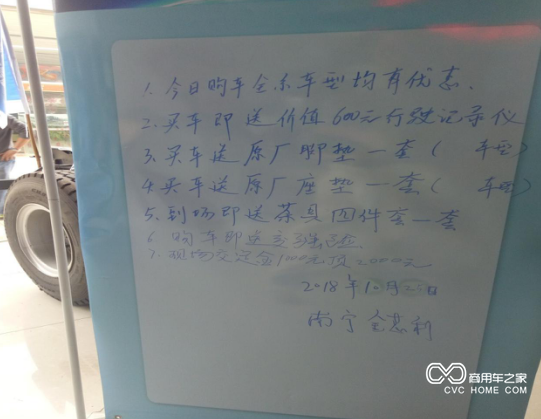 1. 今日购车全系车型均有优惠.
2. 买车即送价值600元行驶记录仪
3. 买车送原厂脚垫一套( 车型)
4. 买车送原厂座垫一套( 车型)
5. 到场即送茶具四件套一套
6. 购车即送交强险.
7. 现场交定金1000元顶2000元
2018年10月25日
南宁
商用车之家
CVC HOME.COM